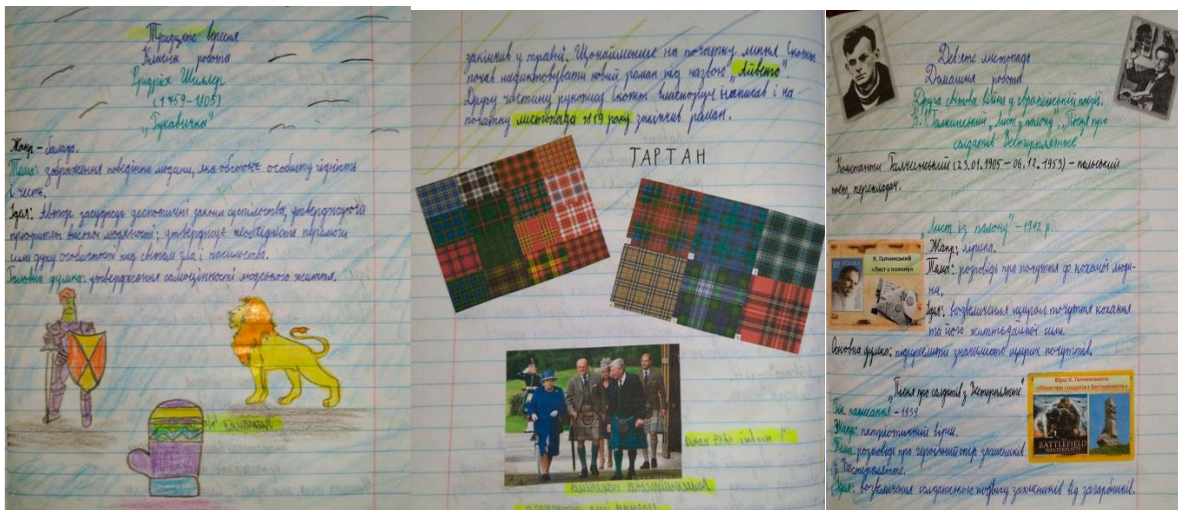 Тридцяте вересня
Класна робота
Фрідріх Шиллер
(1759-1805)
„Рукавичка"
Жанр - балада.
Тема: зображення поведінки людини, яка обстоює особисту гідність
і честь.
Ідея: Автор засуджує деспотичні закони суспільства, утверджуючи
пріоритет високої моральності; утверджує необхідність перемоги
сили духу особистості над світом зла і насильства.
Головна думка: утвердження самоцінності людського життя.
закінчив у травні. Щонайменше на початку липня Скотт
почав надиктовувати новий роман під назвою „Айвенго".
Другу частину рукопису Скотт власноруч написав і на
початку листопада 1819 року закінчив роман.
ТАРТАН
Дев'яте листопада
Домашня робота
Друга світова війна у європейській поезії.
К. І. Галчинський „Лист з полону", „Пісня про
солдатів з Вестерплятте"
Константи Галчинський (23.01.1905 - 06.12.1953) - польський
поет, перекладач.
„Лист із полону" - 1942 р.
Жанр: лірика.
Тема: розповідь про почуття до коханої люди-
ни.
Ідея: возвеличення щирого почуття кохання
та його життєдайної сили.
Основна думка: підкреслити значимість щирих почуттів.
К. Галчинський
«Лист з полону»
„Пісня про солдатів з Вестерплятте"
Рік написання - 1939
Жанр: патріотичний вірш.
Тема: розповідь про героїчний опір захисників
з Вестерплятте.
Ідея: возвеличення солдатського подвигу захисників від загарбників.
Вірш К. Галчинського
«Пісня про солдатів із Вестерплятте»
BATTLEFIELD
WESTERPLATTE